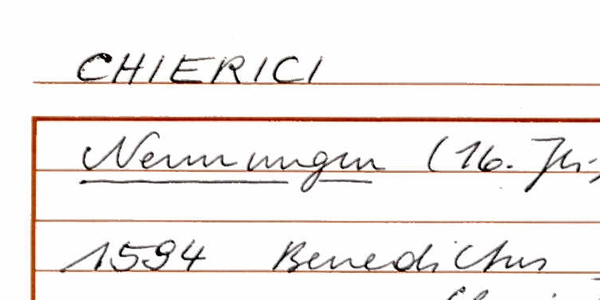 CHIERICI
Nennungen (16. Jh.
1594 Benedictus